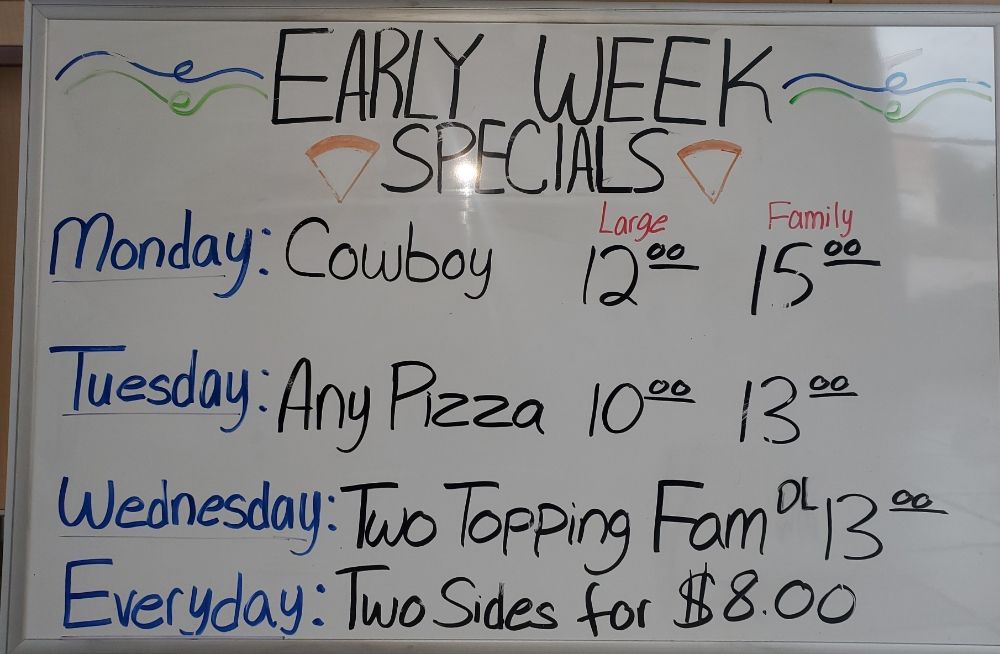 EARLY WEEK
SPECIALS
Large Family
Monday: Cowboy 12⁰⁰ 15⁰⁰
Tuesday: Any Pizza 10⁰⁰ 13⁰⁰
Wednesday: Two Topping Fam DL 13⁰⁰
Everyday: Two Sides for $8.00